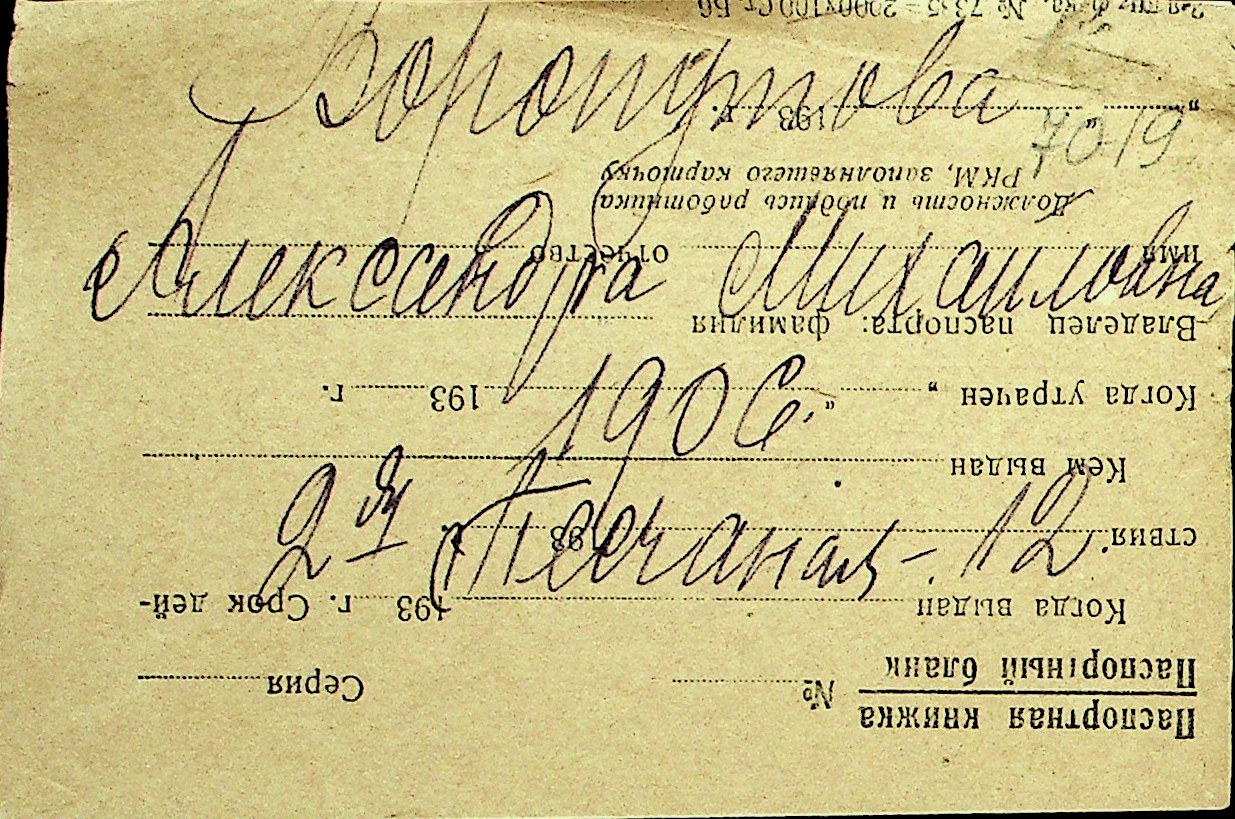 Воропутова
70-19
Александра Михаиловна
1906.
2ая Песчаная - 12
Паспортная книжка
Паспортный бланк
№ Серия
Когда выдан 193 г. Срок дей-
ствия 193 г.
Кем выдан
Когда утрачен „ “ 193 г.
Владелец паспорта: фамилия
имя отчество
Должность и подпись работника
РКМ, заполнявшего карточку
„ “ 193 г.
№ 7335 — 2000х100 Ст. Б6